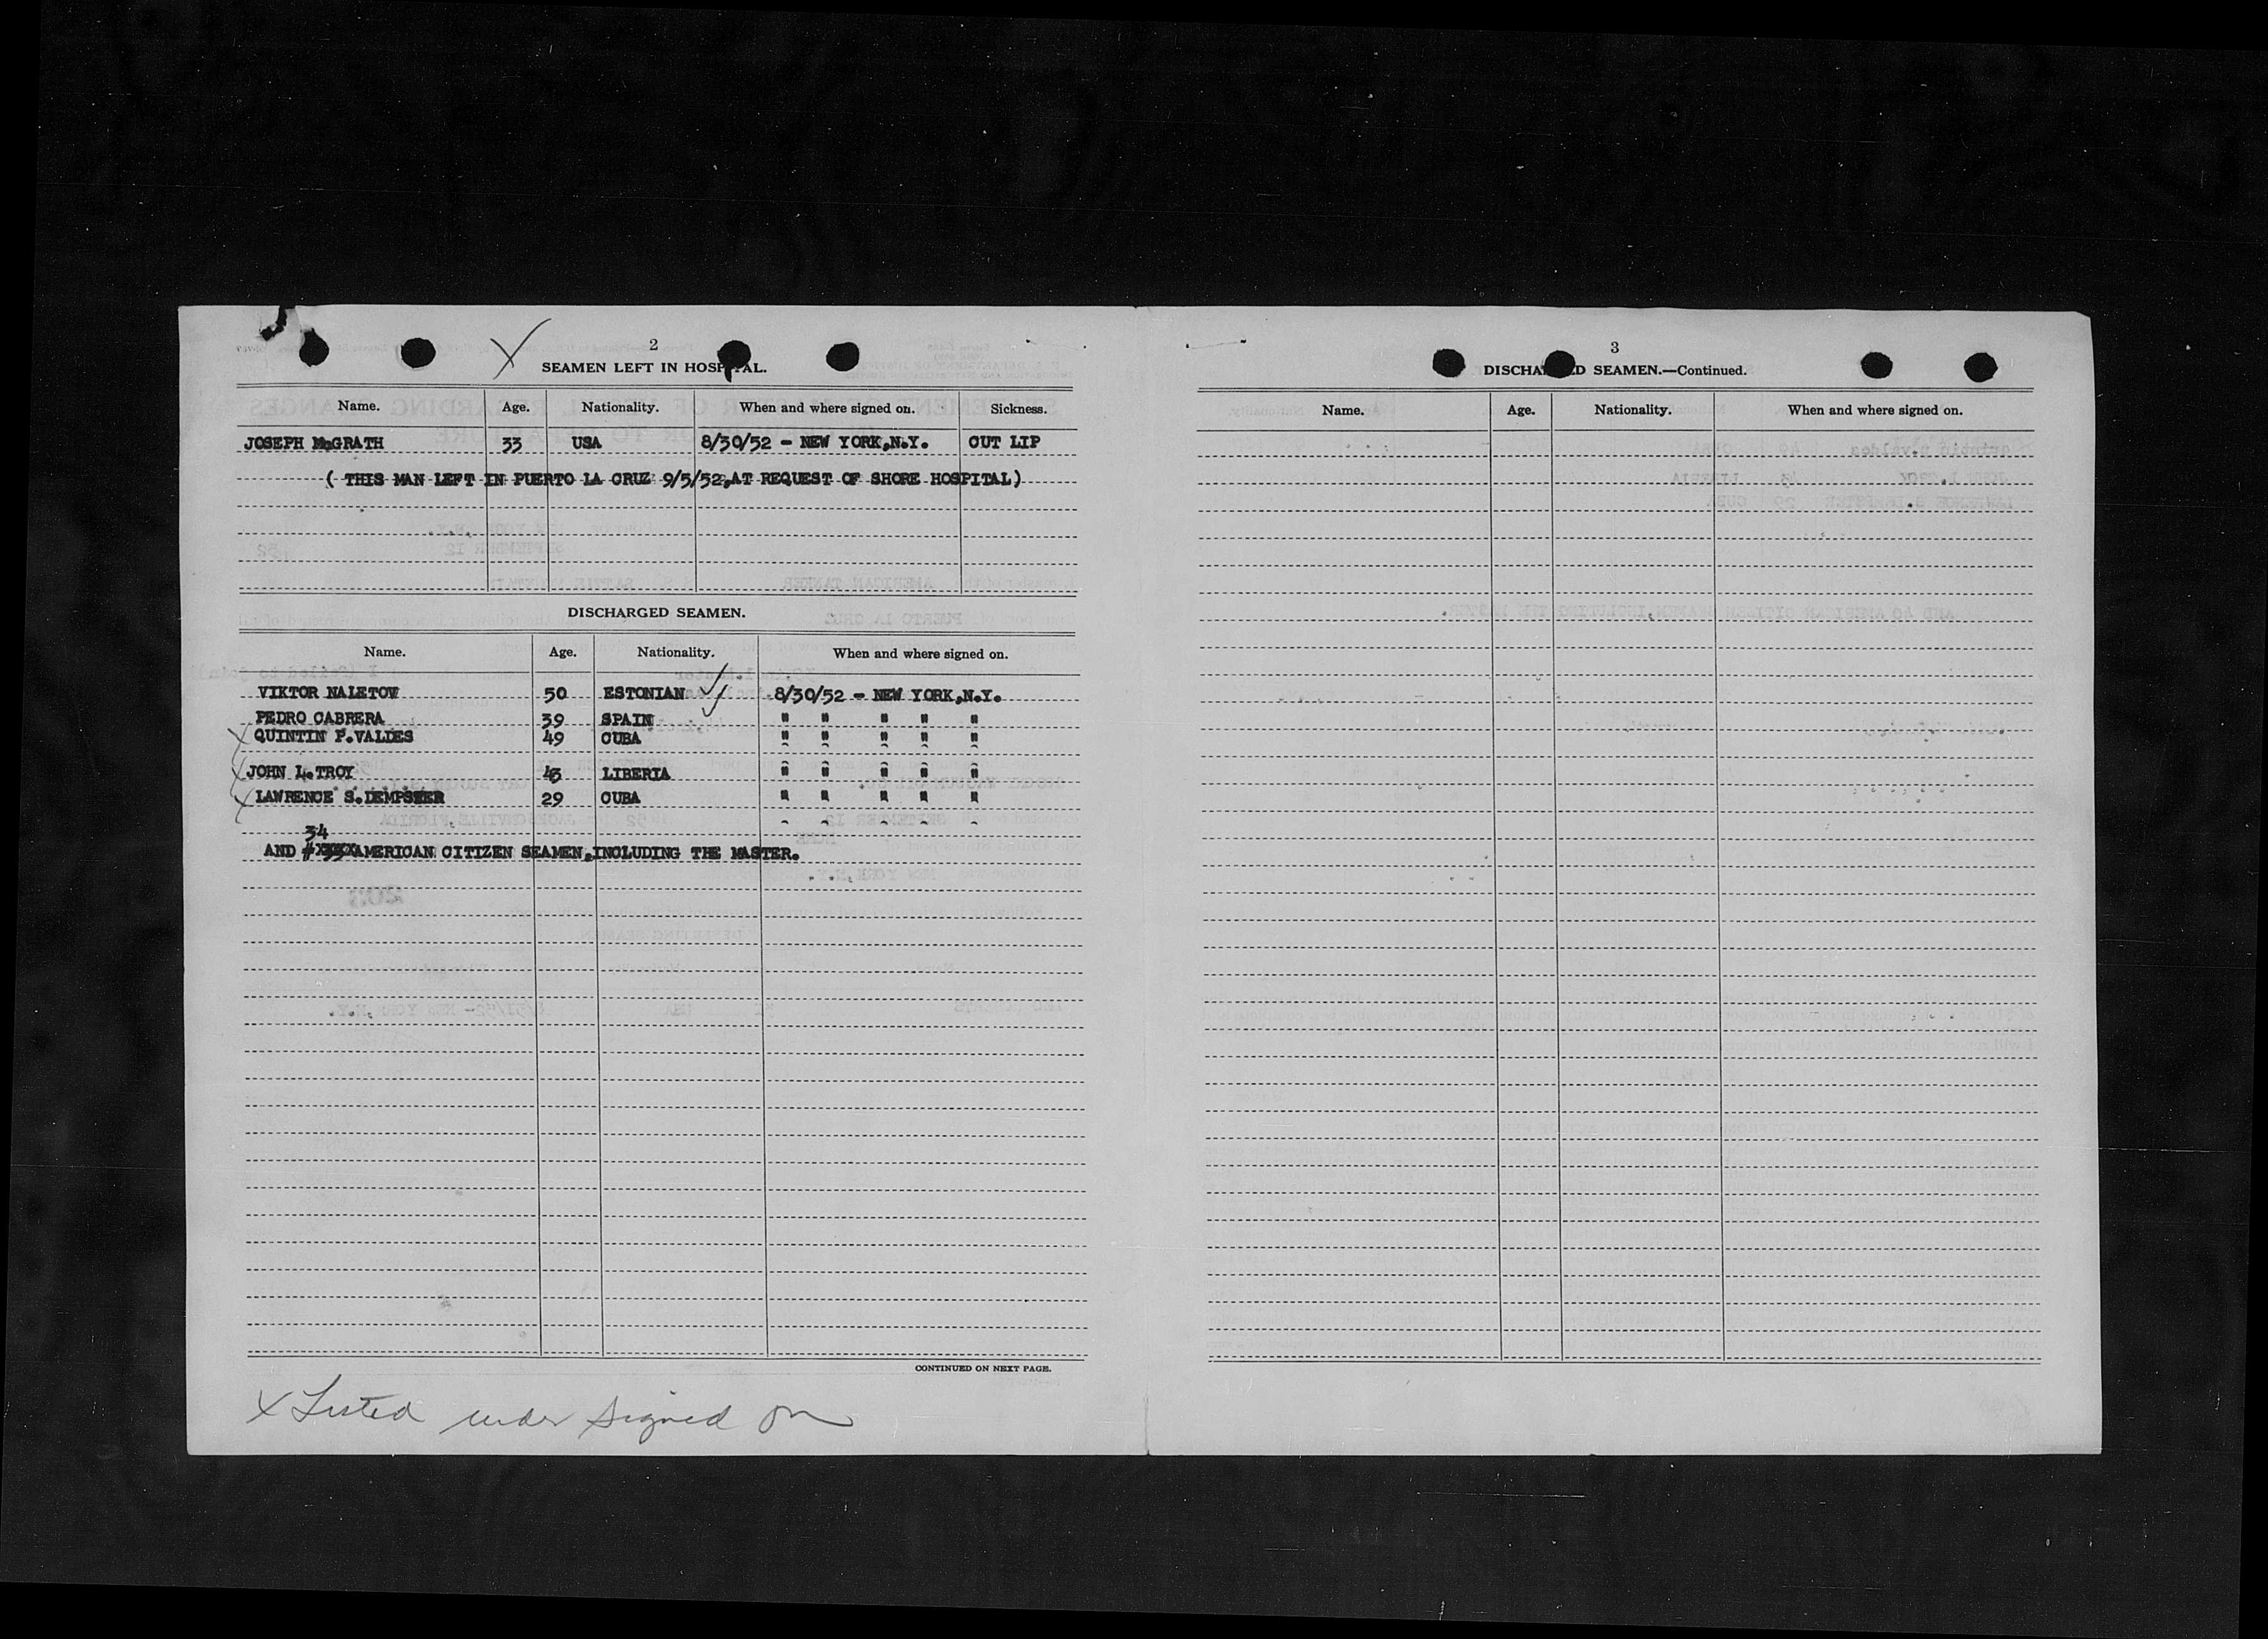 2
SEAMEN LEFT IN HOSPITAL.
Name. Age. Nationality. When and where signed on. Sickness.
JOSEPH McGRATH 33 USA 8/30/52 - NEW YORK,N.Y. CUT LIP
( THIS MAN LEFT IN PUERTO LA CRUZ 9/5/52,AT REQUEST OF SHORE HOSPITAL)
DISCHARGED SEAMEN.
Name. Age. Nationality. When and where signed on.
VIKTOR NALETOV 50 ESTONIAN 8/30/52 - NEW YORK,N.Y.
PEDRO CABRERA 39 SPAIN " " " " "
X QUINTIN P.VALDES 49 CUBA " " " " "
X JOHN L.TROY 43 LIBERIA " " " " "
X LAWRENCE S.DEMPSTER 29 CUBA " " " " "
34
AND AMERICAN CITIZEN SEAMEN,INCLUDING THE MASTER.
CONTINUED ON NEXT PAGE.
X Listed under signed on
3
DISCHARGED SEAMEN.—Continued.
Name. Age. Nationality. When and where signed on.